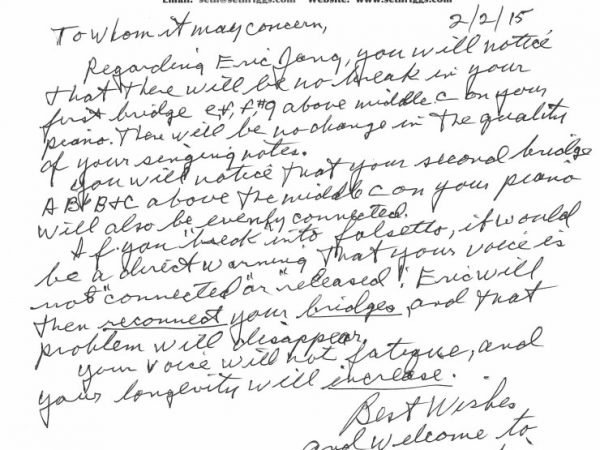 Email: seth@sethriggs.com Website: www.sethriggs.com
To Whom it may concern, 2/2/15
Regarding Eric Jang, you will notice
that there will be no break in your
first bridge e, f, f#, g above middle C on your
piano. There will be no change in the quality
of your singing notes.
you will notice that your second bridge
A Bb B + C above the middle C on your piano
will also be evenly connected.
If you "break" into falsetto, it would
be a direct warning that your voice is
not "connected" or "released". Eric will
then reconnect your bridges, and that
problem will disappear.
your voice will not fatigue, and
your longevity will increase.
Best Wishes
and welcome to